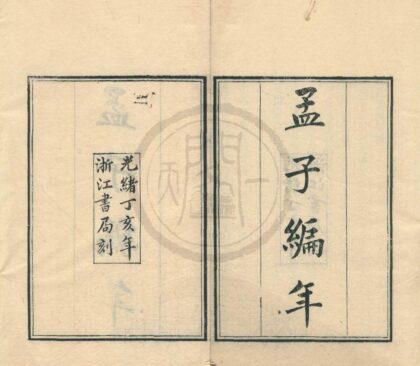 孟子編年
光緒丁亥年
浙江書局刻